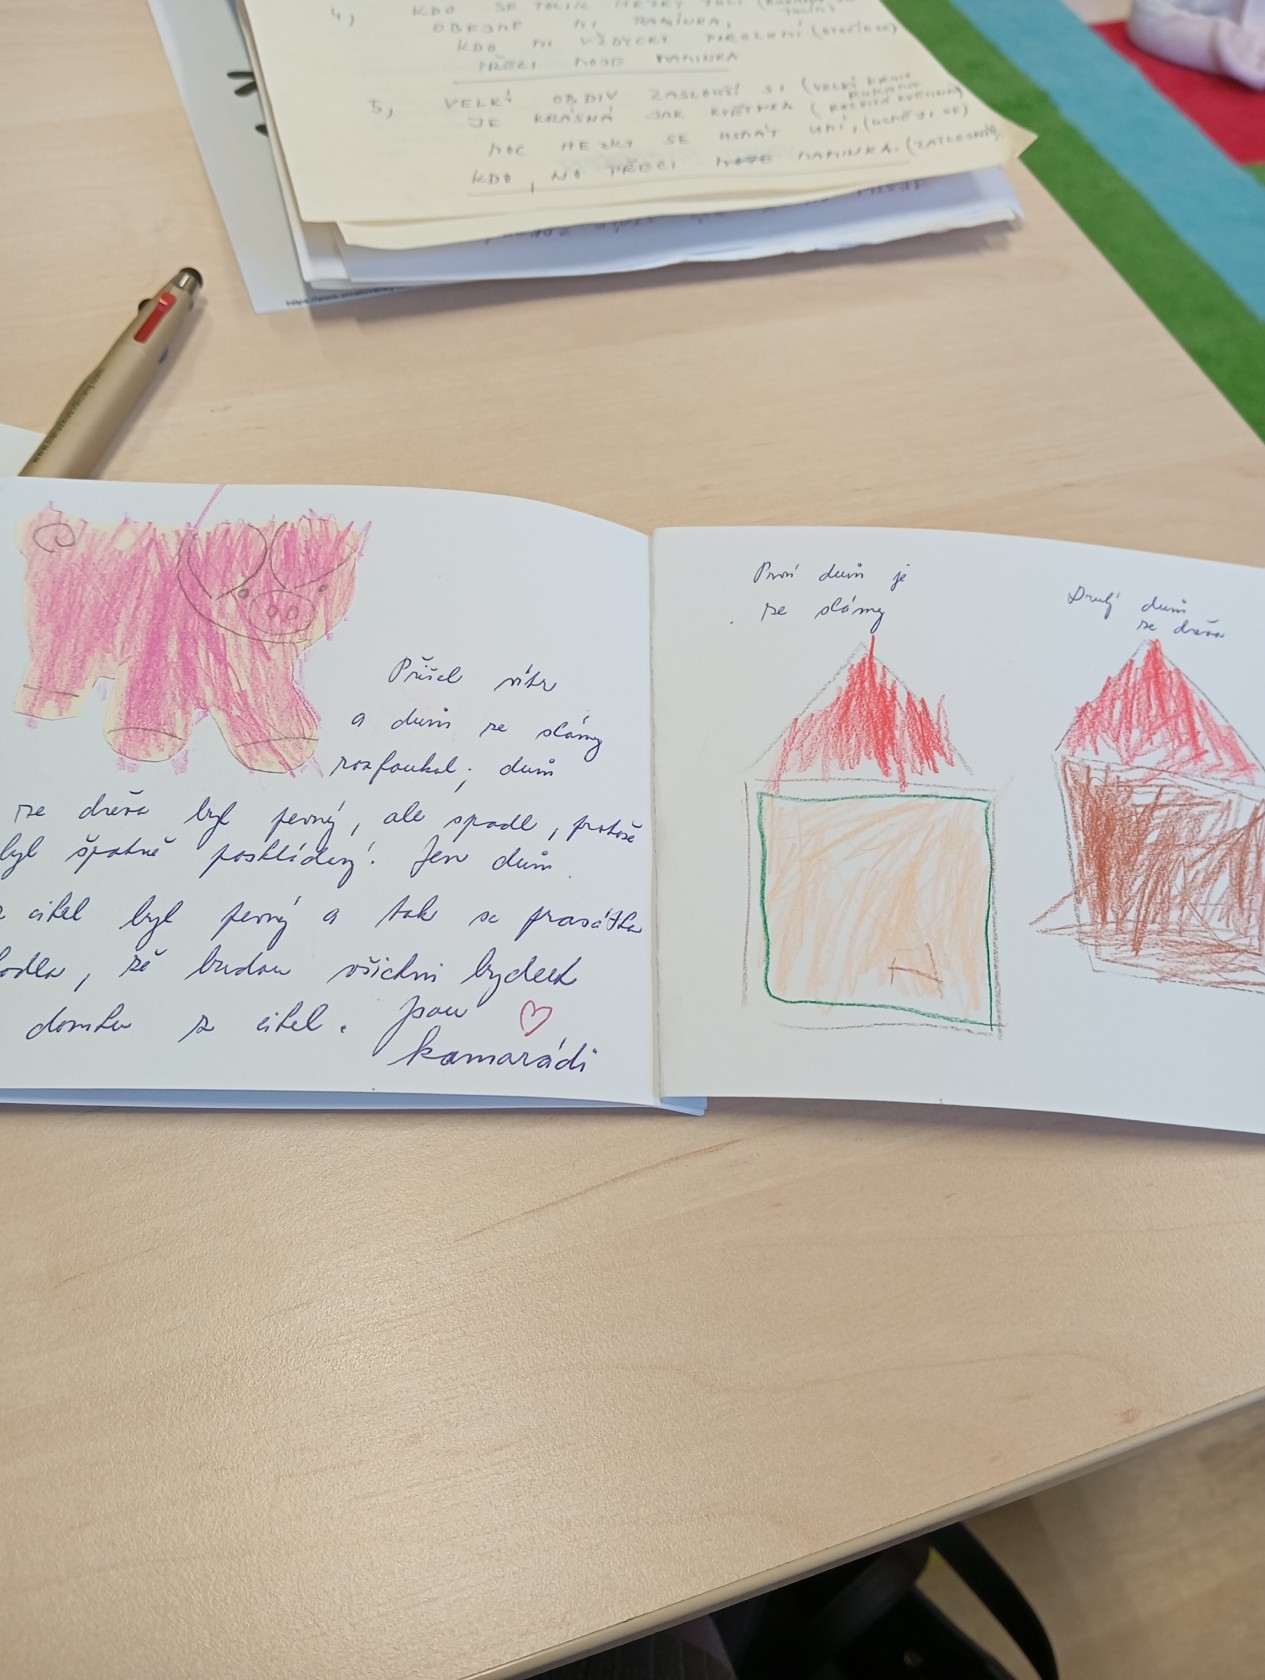 4, KDO SE TOLIK HEZKY TOČÍ
OBEJME MI MAMINKA,
KDO MI VŽDYCKY POROZUMÍ
PŘECI MOJE MAMINKA
5, VELKÝ OBDIV ZASLOUŽÍ SI (VELKÝ KRUH RUKAMA)
JE KRÁSNÁ JAK KVĚTINA
MOC HEZKY SE USMÁT UMÍ, (USMĚJÍ SE)
KDO, NO PŘECI MOJE MAMINKA. (ZATLESKÁ)
Přišel vítr
a dům ze slámy
rozfoukal, dům
ze dřeva byl pevný, ale spadl, protože
byl špatně poskládaný. Jen dům
z cihel byl pevný a tak se prasátka
, že budou všichni bydlet
domku z cihel. Jsou
kamarádi
První dům je
ze slámy
Druhý dům
ze dřeva